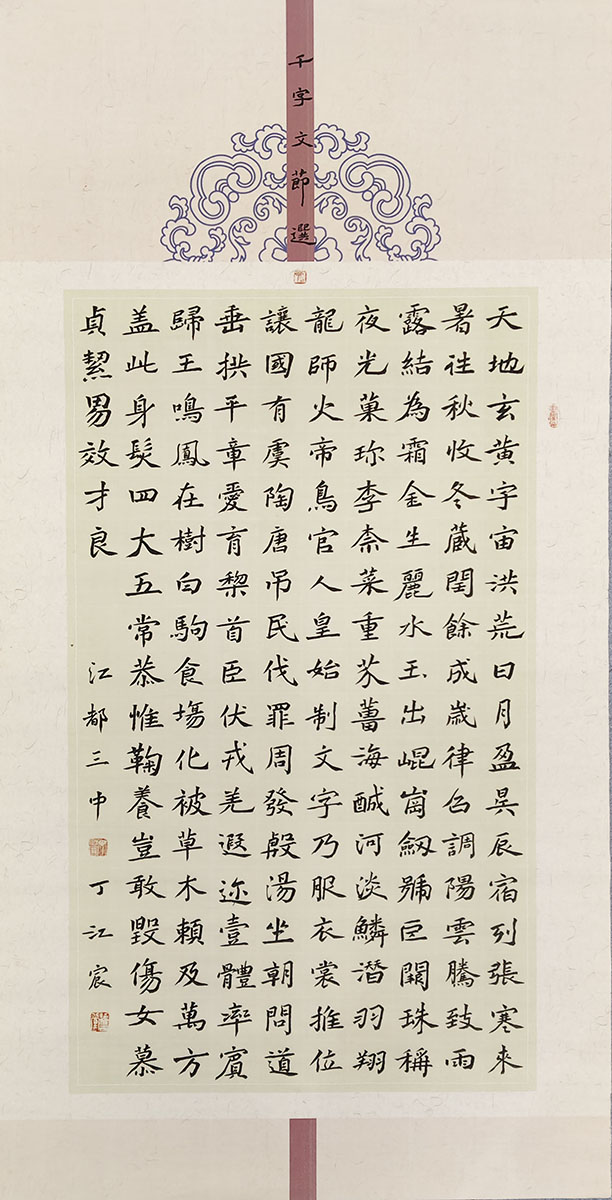 千字文節選
天地玄黃宇宙洪荒日月盈昃辰宿列張寒來
暑往秋收冬藏閏餘成歲律呂調陽雲騰致雨
露結為霜金生麗水玉出崐崗劔號巨闕珠稱
夜光菓珎李柰菜重芥薑海醎河淡鱗潛羽翔
龍師火帝鳥官人皇始制文字乃服衣裳推位
讓國有虞陶唐吊民伐罪周發殷湯坐朝問道
垂拱平章愛育黎首臣伏戎羌遐迩壹體率賓
歸王鳴鳳在樹白駒食場化被草木賴及萬方
盖此身髮四大五常恭惟鞠養豈敢毀傷女慕
貞絜男效才良
江都三中
丁江宸